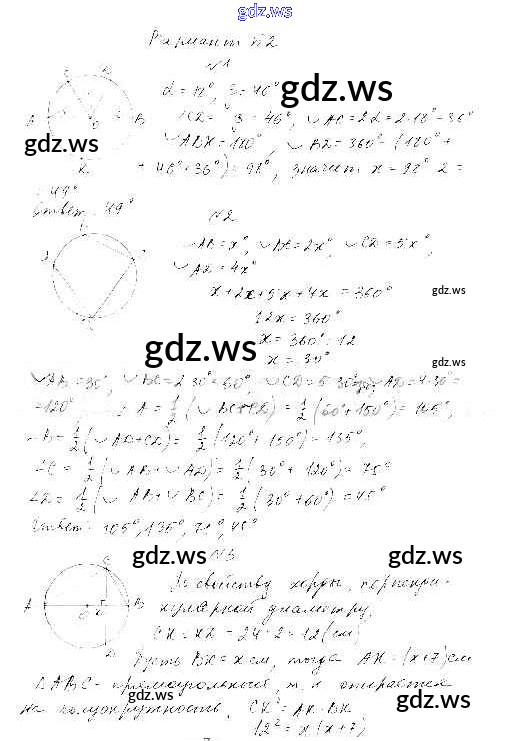 gdz.ws
Вариант №2
№1
α = 18°, β = 46°
gdz.ws
∪CD = β = 46°, ∪AC = 2α = 2·18° = 36°
gdz.ws
∪ABK = 180°, ∪BD = 360° - (180° +
+ 46° + 36°) = 98°, значит x = 98° : 2 =
= 49°
Ответ: 49°
№2
∪AB = x°, ∪BC = 2x°, ∪CD = 5x°,
∪AD = 4x°
x + 2x + 5x + 4x = 360°
gdz.ws
12x = 360°
x = 360° : 12
gdz.ws
x = 30°
gdz.ws
∪AB = 30°, ∪BC = 2·30° = 60°, ∪CD = 5·30° ∪AD = 4·30° =
= 120°, ∠A = 1/2 (∪BC+CD) = 1/2 (60° + 150°) = 105°,
∠B = 1/2 (∪AD+CD) = 1/2 (120° + 150°) = 135°,
∠C = 1/2 (∪AB+∪AD) = 1/2 (30° + 120°) = 75°
∠D = 1/2 (∪AB+∪BC) = 1/2 (30° + 60°) = 45°
Ответ: 105°, 135°, 75°, 45°
gdz.ws №3 gdz.ws
По свойству хорды, перпенди-
кулярной диаметру,
CK = KD = 24 : 2 = 12 (см)
Пусть BK = x см, тогда AK = (x+7) см
△ABC - прямоугольный, т. к. опирается
gdz.ws
на полуокружность, CK² = AK · BK
gdz.ws
12² = x (x + 7)